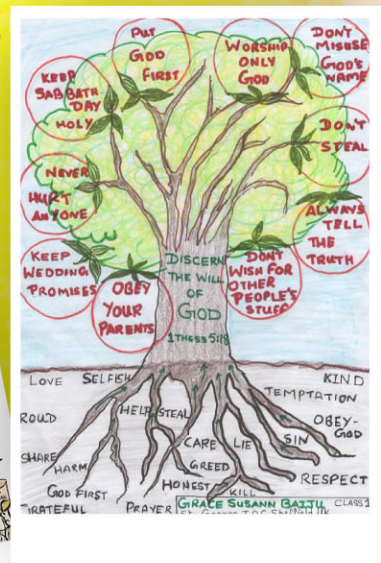 PUT
GOD
FIRST
WORSHIP
ONLY
GOD
DON'T
MISUSE
GOD'S
NAME
KEEP
SABBATH
DAY
HOLY
DON'T
STEAL
NEVER
HURT
ANYONE
ALWAYS
TELL
THE
TRUTH
KEEP
WEDDING
PROMISES
OBEY
YOUR
PARENTS
DISCERN
THE WILL
OF
GOD
1 THESS 5:18
DON'T
WISH FOR
OTHER
PEOPLE'S
STUFF
LOVE SELFISH KIND
TEMPTATION
ROUD HELP STEAL OBEY-
GOD
CARE LIE SIN
SHARE
HARM GREED
HONEST RESPECT
GOD FIRST KILL
PRAYER
GRACE SUSANN BAIJU CLASS 1